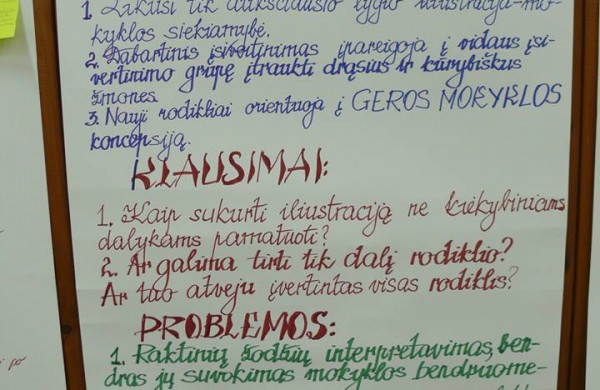 1. Likusi tik aukščiausio lygio iliustracija-mo-
kyklos siekiamybė.
2. Dabartinis įsivertinimas įpareigoja į vidaus įsi-
vertinimo grupę įtraukti drąsius ir kūrybiškus
žmones.
3. Nauji rodikliai orientuoja į GEROS MOKYKLOS
koncepsiją.
KLAUSIMAI:
1. Kaip sukurti iliustraciją ne kiekybiniams
dalykams pamatuoti?
2. Ar galima tirti tik dalį rodiklio?
Ar tuo atveju įvertintas visas rodiklis?
PROBLEMOS:
1. Raktinių žodžių interpretavimas, ben-
dras jų suvokimas mokyklos bendruome-